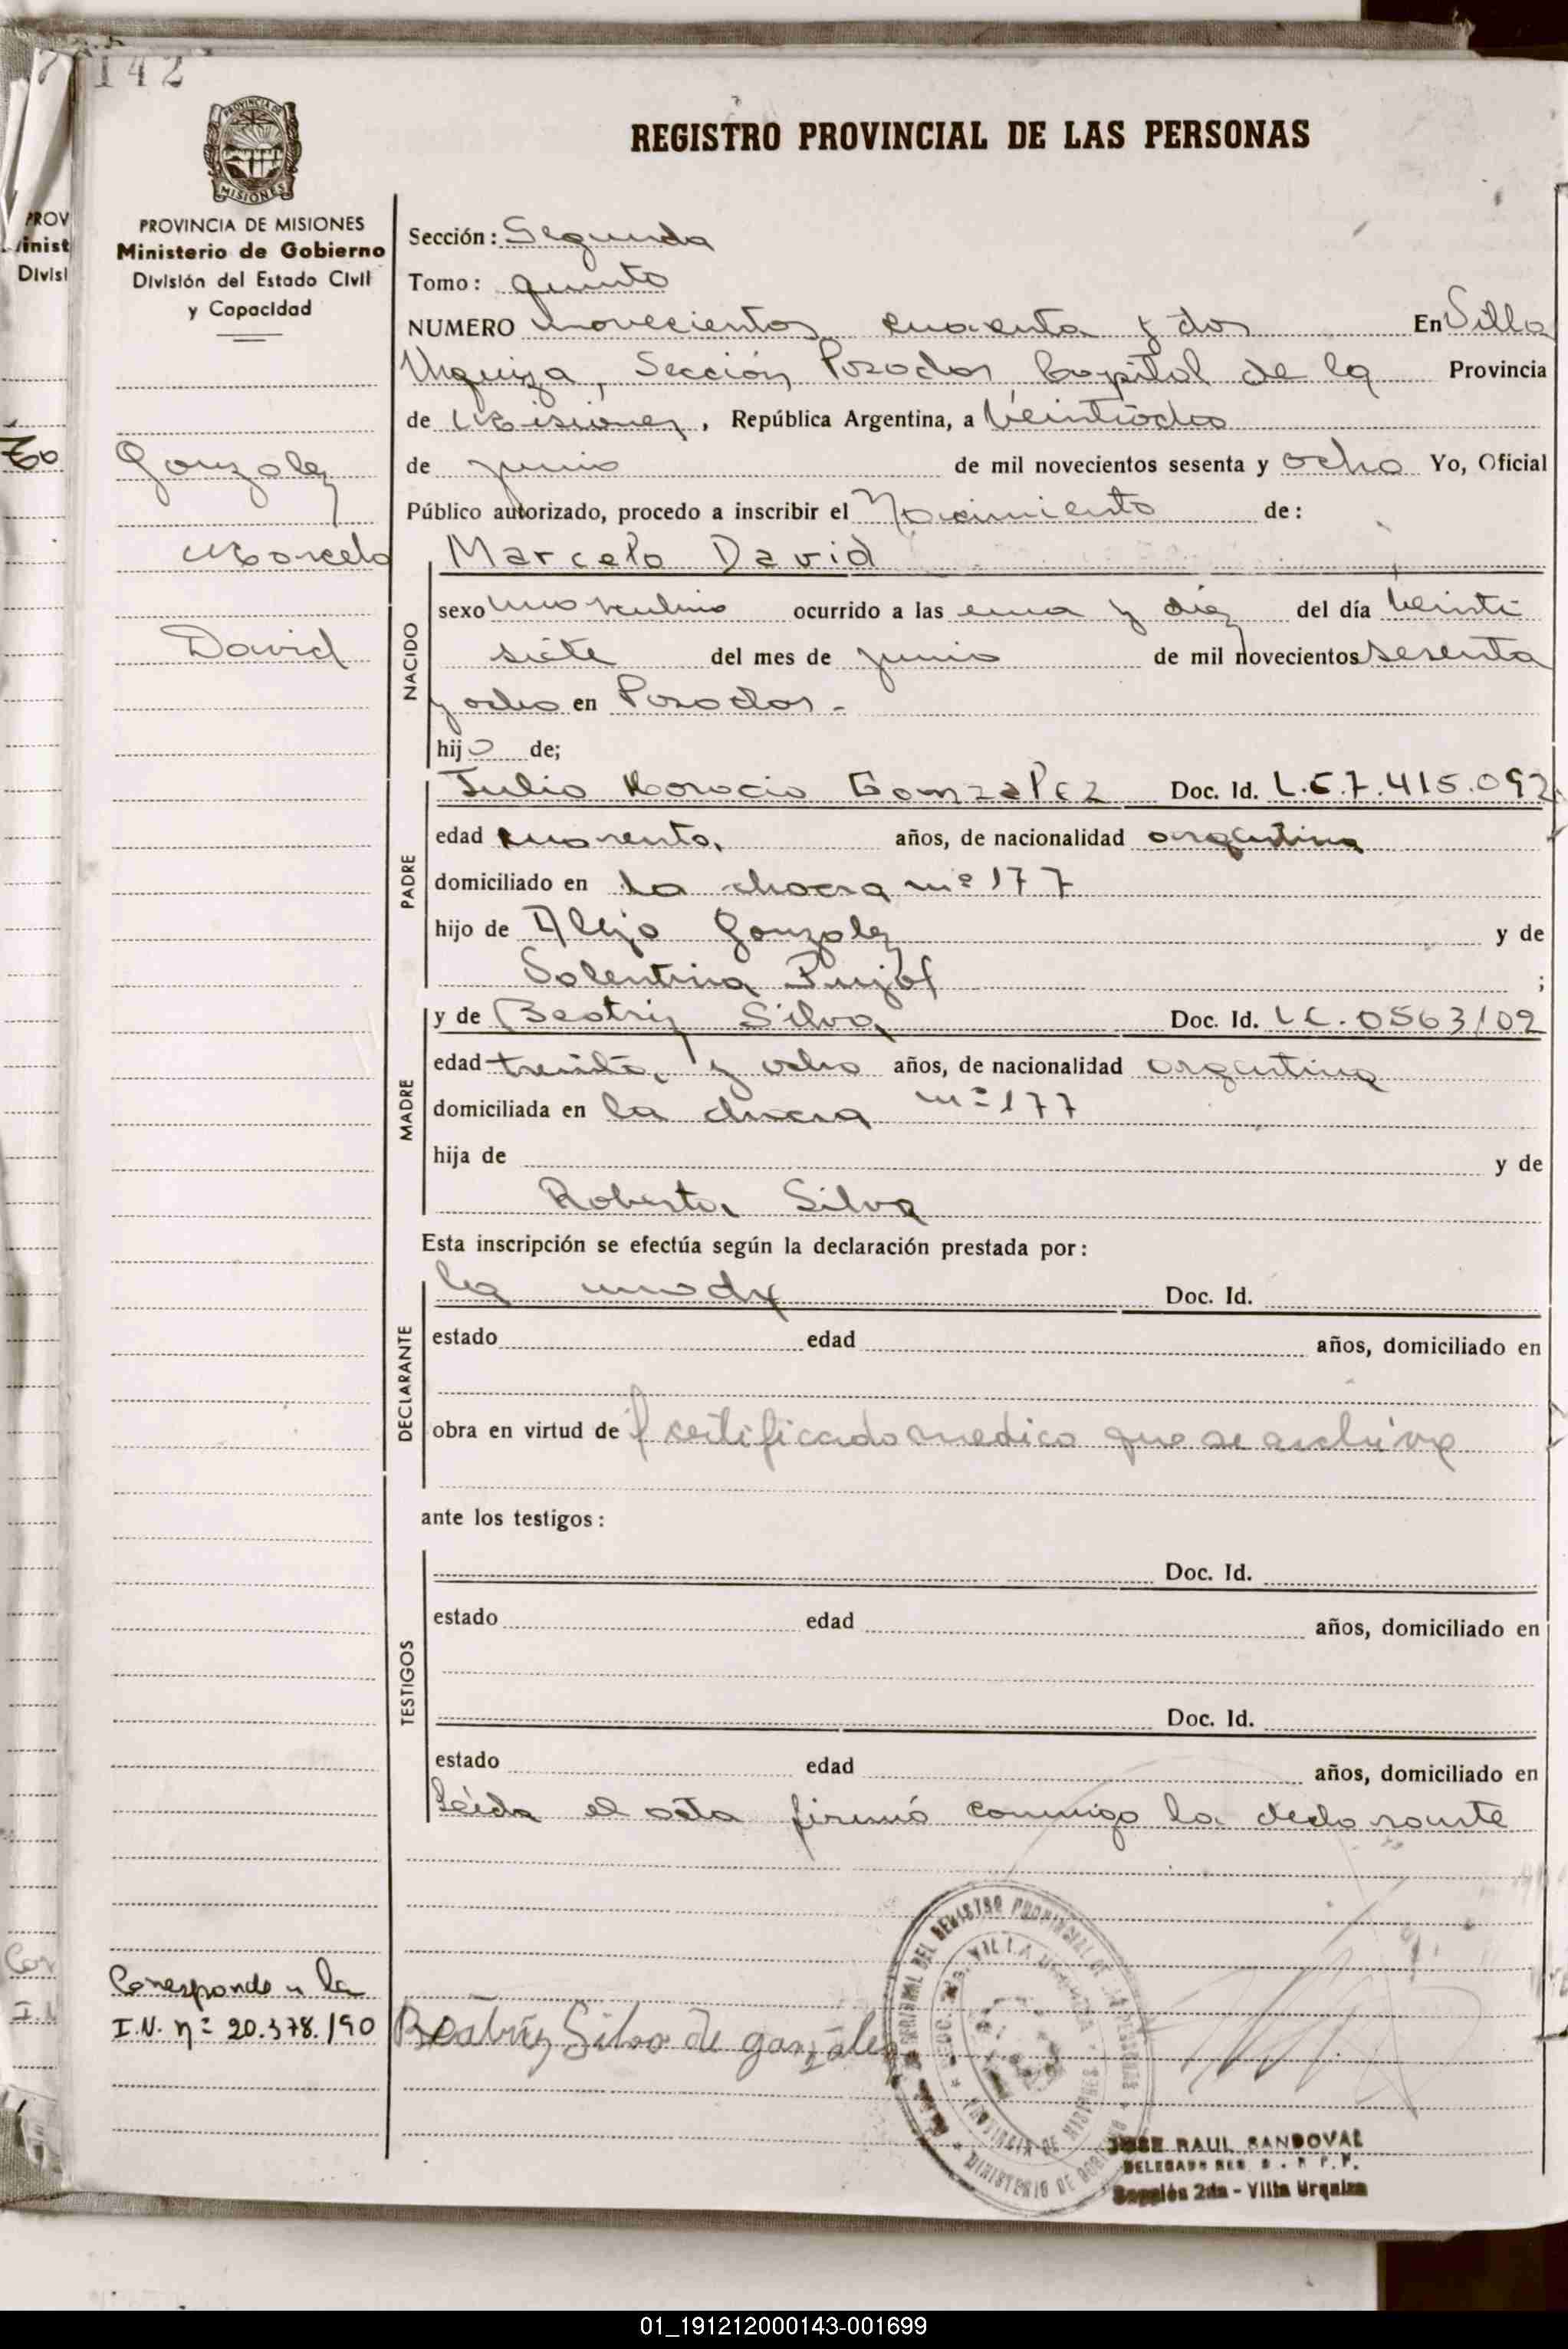 142
PROVINCIA DE MISIONES
MISIONES
PROVINCIA DE MISIONES
Ministerio de Gobierno
División del Estado Civil
y Capacidad
REGISTRO PROVINCIAL DE LAS PERSONAS
Sección: Segunda
Tomo: quinto
NUMERO novecientos cuarenta y dos En Villa
Urquiza, Sección Posadas Capital de la Provincia
de Misiones, República Argentina, a
de junio de mil novecientos sesenta y ocho Yo, Oficial
Público autorizado, procedo a inscribir el Nacimiento de:
Gonzalez
Marcelo
David
NACIDO
Marcelo David
sexo masculino ocurrido a las una y diez del día veinti
siete del mes de junio de mil novecientos sesenta
y ocho en Posadas.-
hijo de;
PADRE
Julio Horacio Gonzalez Doc. Id. L.E.7.415.092
edad cuarenta, años, de nacionalidad argentina
domiciliado en la chacra nº 177
hijo de Alejo Gonzalez y de
Solentina Pujol ;
MADRE
y de Beatriz Silva Doc. Id. LC.0563102
edad treinta y ocho años, de nacionalidad argentina
domiciliada en la chacra nº 177
hija de y de
Roberta Silva
Esta inscripción se efectúa según la declaración prestada por:
DECLARANTE
la madre Doc. Id.
estado edad años, domiciliado en
obra en virtud de certificado medico que se archiva
ante los testigos:
TESTIGOS
Doc. Id.
estado edad años, domiciliado en
Doc. Id.
estado edad años, domiciliado en
Leida el acta firmó conmigo la declarante
Corresponde a la
I.N. nº 20.378./90
Beatríz Silva de gonzález
JOSE RAUL SANDOVAL
Sección 2da - Villa Urquiza
01_191212000143-001699